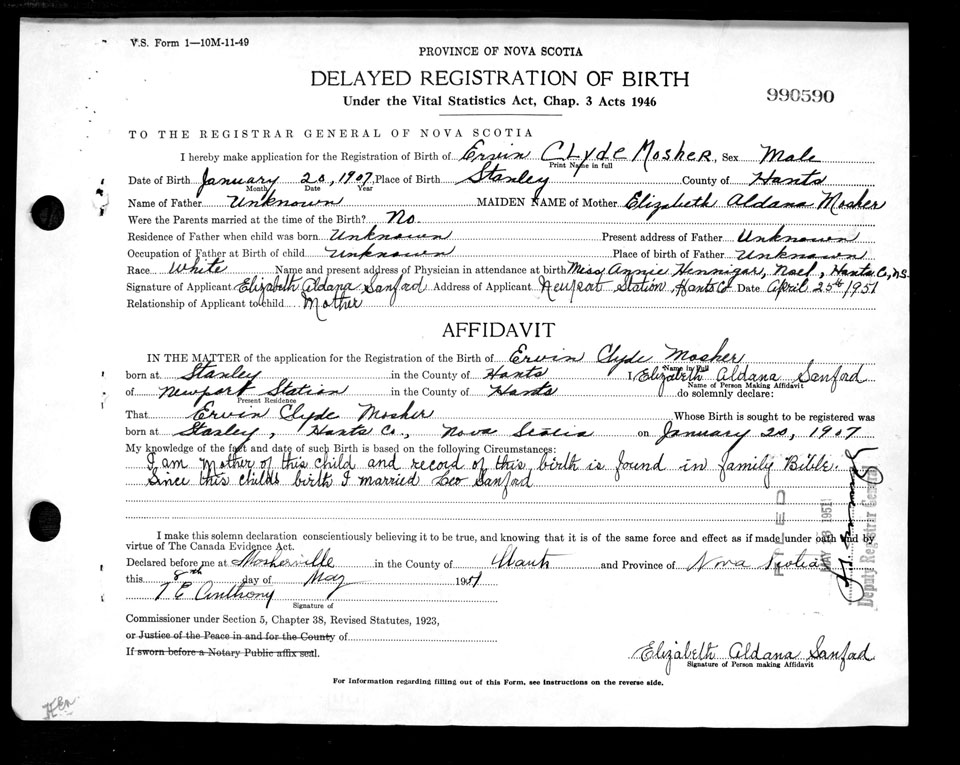 V.S. Form 1—10M-11-49
PROVINCE OF NOVA SCOTIA
DELAYED REGISTRATION OF BIRTH
Under the Vital Statistics Act, Chap. 3 Acts 1946
990590
TO THE REGISTRAR GENERAL OF NOVA SCOTIA
I hereby make application for the Registration of Birth of Ervin CLyde Mosher, Sex Male
Print Name in full
Date of Birth January 20, 1907, Place of Birth Stanley County of Hants
Month Date Year
Name of Father Unknown MAIDEN NAME of Mother Elizabeth Aldana Mosher
Were the Parents married at the time of the Birth? No.
Residence of Father when child was born Unknown Present address of Father Unknown
Occupation of Father at Birth of child Unknown Place of birth of Father Unknown
Race White Name and present address of Physician in attendance at birth Miss Annie Hennigar, Noel, Hants Co, N.S.
Signature of Applicant Elizabeth Aldana Sanford Address of Applicant Newport Station, Hants Co Date April 25th 1951
Relationship of Applicant to child Mother
AFFIDAVIT
IN THE MATTER of the application for the Registration of the Birth of Ervin Clyde Mosher
Name in Full
born at Stanley in the County of Hants I, Elizabeth Aldana Sanford
Name of Person Making Affidavit
of Newport Station in the County of Hants do solemnly declare:
Present Residence
That Ervin Clyde Mosher Whose Birth is sought to be registered was
born at Stanley, Hants Co., Nova Scotia on January 20, 1907
My knowledge of the fact and date of such Birth is based on the following Circumstances:
I am Mother of this child and record of this birth is found in family Bible.
Since this childs birth I married Leo Sanford
I make this solemn declaration conscientiously believing it to be true, and knowing that it is of the same force and effect as if made under oath and by
virtue of The Canada Evidence Act.
Declared before me at Mosherville in the County of Hants and Province of Nova Scotia
this 8th day of May 1951
T E Anthony
Signature of
Commissioner under Section 5, Chapter 38, Revised Statutes, 1923,
or Justice of the Peace in and for the County of
If sworn before a Notary Public affix seal.
Elizabeth Aldana Sanford
Signature of Person making Affidavit
For Information regarding filling out of this Form, see instructions on the reverse side.
FILED
1951
Deputy Registrar General